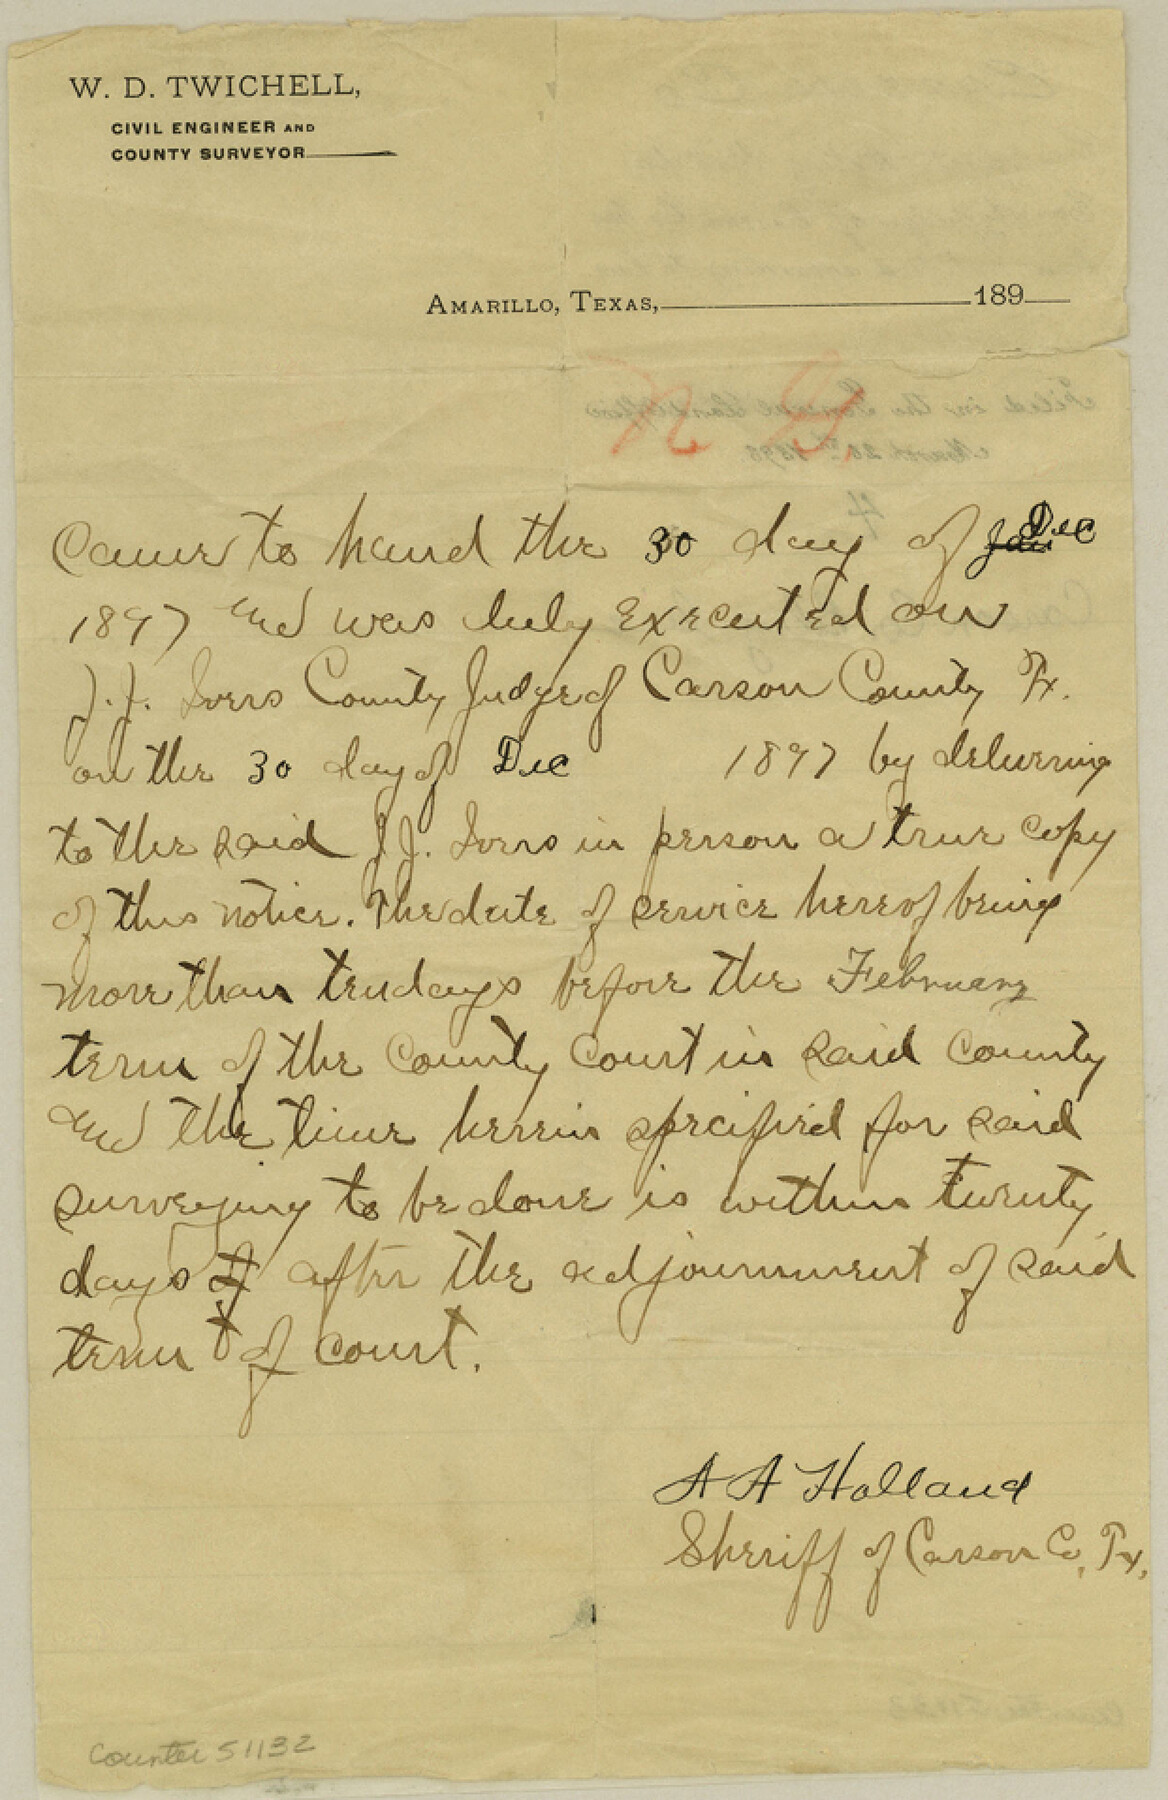 W. D. TWICHELL,
CIVIL ENGINEER AND
COUNTY SURVEYOR
AMARILLO, TEXAS, 189
Filed in the General Land Office
March 26th 1898
4
Came to hand the 30 day of Jan Dec
1897 and was duly executed on
J. J. Ivers County Judge of Carson County Tx.
on the 30 day of Dec 1897 by delivering
to the said J J. Ivers in person a true copy
of this notice. The date of service hereof being
more than ten days before the February
term of the County Court in said county
and the time herein specified for said
surveying to be done is within twenty
days of after the adjournment of said
term of court.
A A Holland
Sheriff of Carson Co, Tx,
Counter 51132